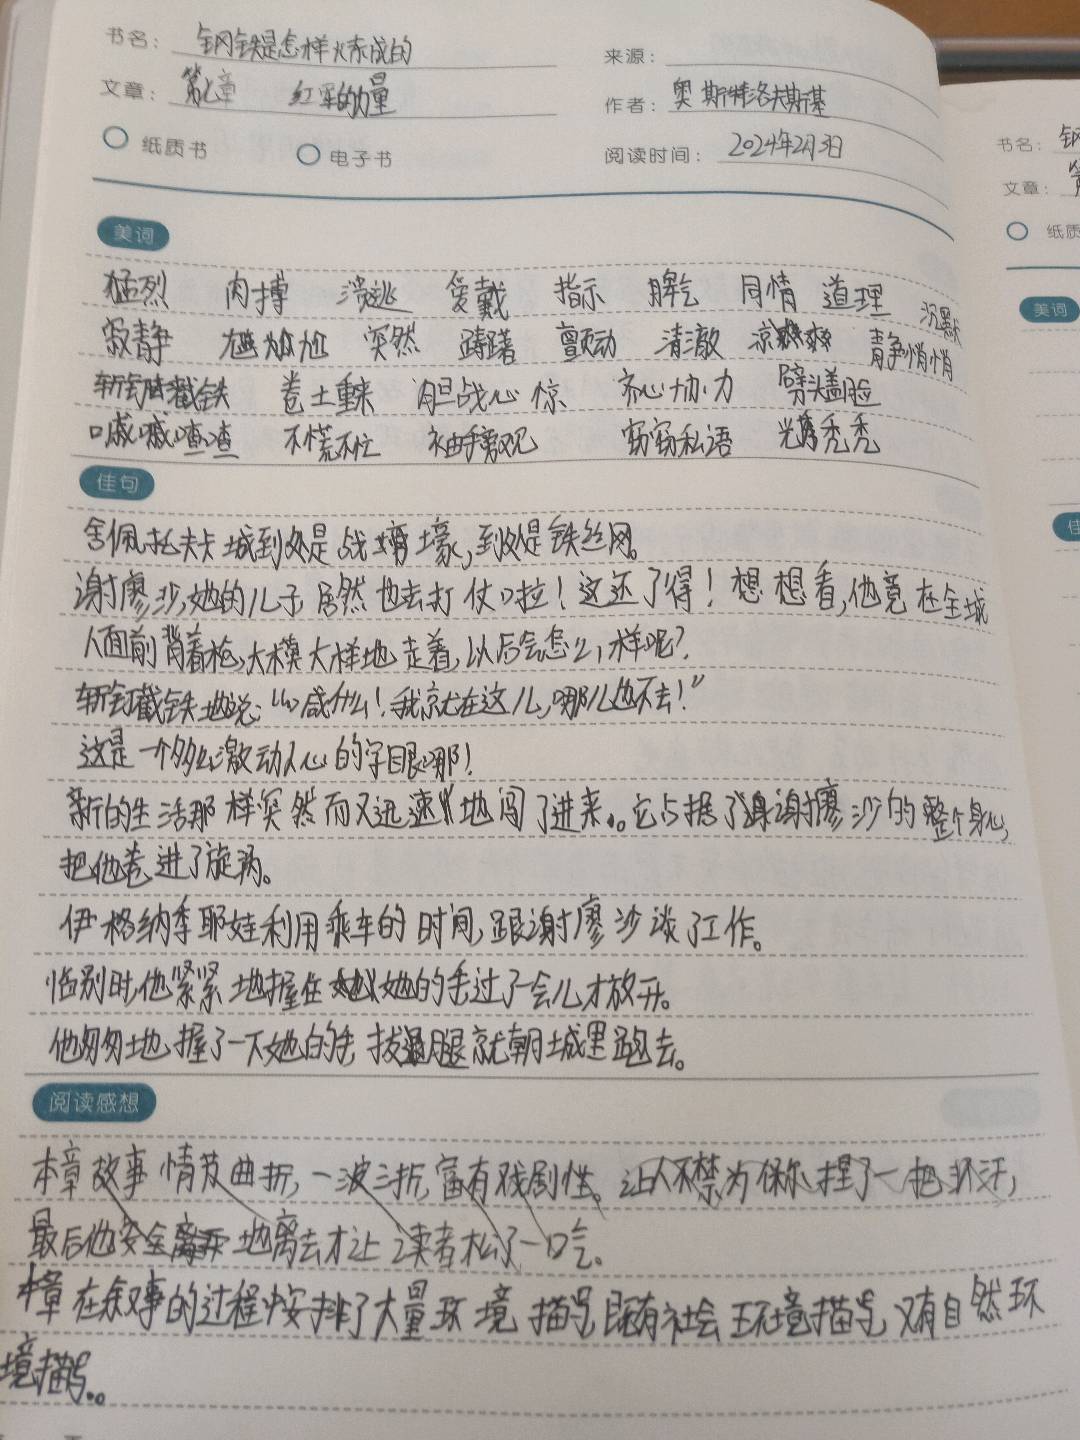 书名：钢铁是怎样炼成的
来源：
文章：第七章 红军的力量
作者：奥斯特洛夫斯基
纸质书 电子书
阅读时间：2024年2月3日
美词
猛烈 肉搏 溃逃 爱戴 指示 脾气 同情 道理 沉默
寂静 尴尬 突然 踌躇 颤动 清澈 凉爽爽 静悄悄
斩钉截铁 卷土重来 胆战心惊 齐心协力 劈头盖脸
嘁嘁喳喳 不慌不忙 袖手旁观 窃窃私语 光秃秃
佳句
舍佩托夫卡城到处是战壕，到处是铁丝网。
谢廖沙，她的儿子，居然也去打仗啦！这还了得！想想看，他竟在全城
人面前背着枪，大模大样地走着，以后会怎么样呢？
斩钉截铁地说：“喊什么！我就在这儿，哪儿也不去！”
这是一个多么激动人心的字眼哪！
新的生活那样突然而又迅速地闯了进来。它占据了谢廖沙的整个身心，
把他卷进了旋涡。
伊格纳季耶娃利用乘车的时间，跟谢廖沙谈了工作。
临别时，他紧紧地握住她的手过了一会儿才放开。
他匆匆地握了一下她的手，拔腿就朝城里跑去。
阅读感想
本章故事情节曲折，一波三折，富有戏剧性。让人不禁为保尔捏了一把汗，
最后他安全地离去才让读者松了一口气。
本章在叙事的过程中安排了大量环境描写，既有社会环境描写，又有自然环
境描写。
书名：钢
文章：第
纸质
美词
佳